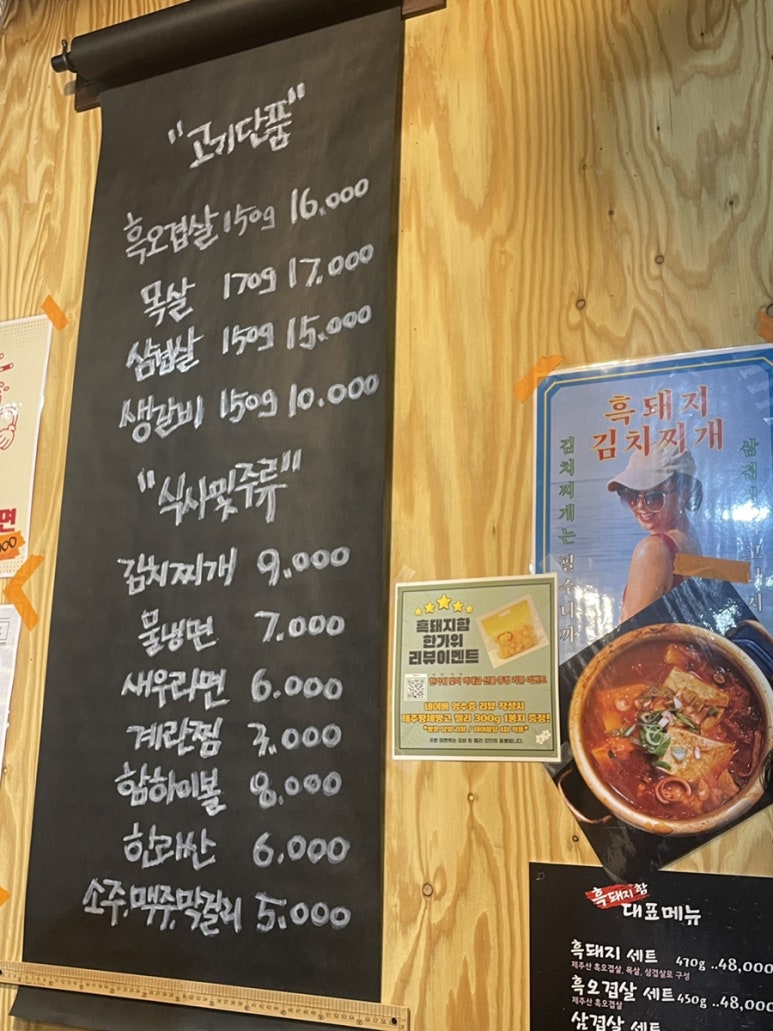 "고기단품"
흑오겹살 150g 16.000
목살 170g 17.000
삼겹살 150g 15.000
생갈비 150g 10.000
"식사및주류"
김치찌개 9.000
물냉면 7.000
새우라면 6.000
계란찜 3.000
함하이볼 8.000
한라산 6.000
소주,맥주,막걸리 5.000
면
흑돼지
김치찌개
김치찌개는 필수니까
흑돼지함
한가위
리뷰이벤트
네이버 영수증 리뷰 작성시
제주황제망고 젤리 300g 1봉지 증정!
흑돼지함
대표메뉴
흑돼지 세트 470g ..48,000
제주산 흑오겹살, 목살, 삼겹살로 구성
흑오겹살 세트 450g ..48,000
제주산 흑오겹살
삼겹살 세트